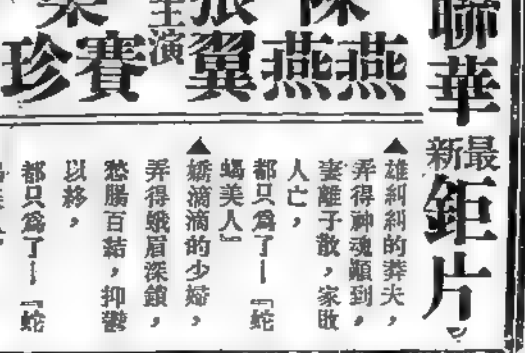 聯華
最新
鉅片
陳燕燕
張翼
主演
賽珍
▲雄糾糾的莽夫，
弄得神魂顛到，
妻離子散，家敗
人亡，
都只爲了—『蛇
蝎美人』
▲嬌滴滴的少婦，
弄得蛾眉深鎖，
愁腸百結，抑鬱
以終，
都只爲了—『蛇